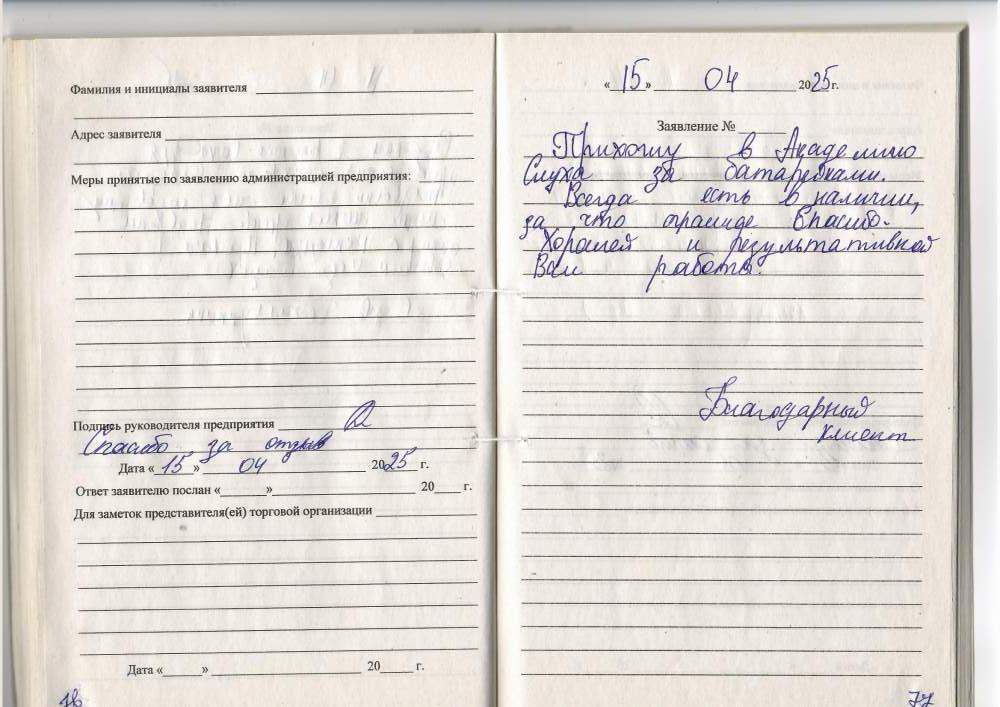 Фамилия и инициалы заявителя
Адрес заявителя
Меры принятые по заявлению администрацией предприятия:
Подпись руководителя предприятия
Спасибо за отзыв
Дата « 15 » 04 2025 г.
Ответ заявителю послан « » 20 г.
Для заметок представителя(ей) торговой организации
Дата « » 20 г.
76
« 15 » 04 2025 г.
Заявление №
Прихожу в Академию
Слуха за батарейками.
Всегда есть в наличии,
за что огромное Спасибо.
Хорошей и результативной
Вам работы.
Благодарный
клиент
77